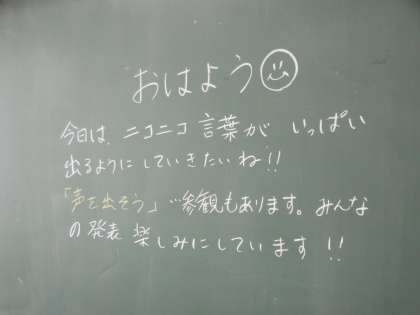 おはよう
今日は、ニコニコ言葉が いっぱい
出るように していきたいね!!
「声を出そう」…参観もあります。みんな
の発表 楽しみにしています!!